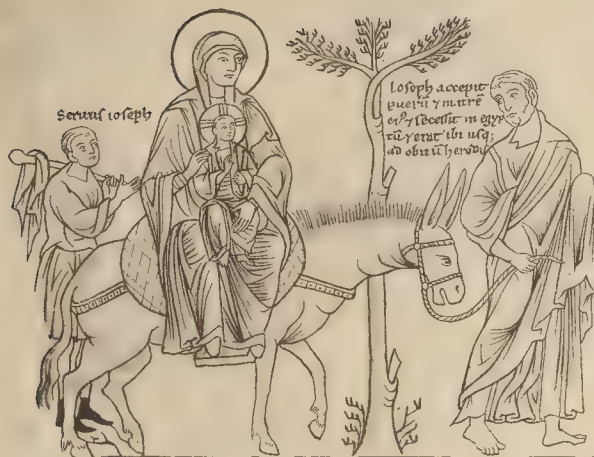 Servus ioseph
Ioseph accepit
puerū ⁊ matrē
ei⁹ ⁊ secessit in egyp
tū ⁊ erat ibi usq;
ad obitū herodis